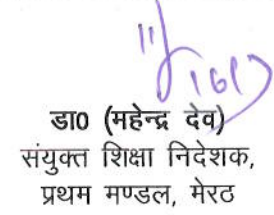 डा0 (महेन्द्र देव)
संयुक्त शिक्षा निदेशक,
प्रथम मण्डल, मेरठ